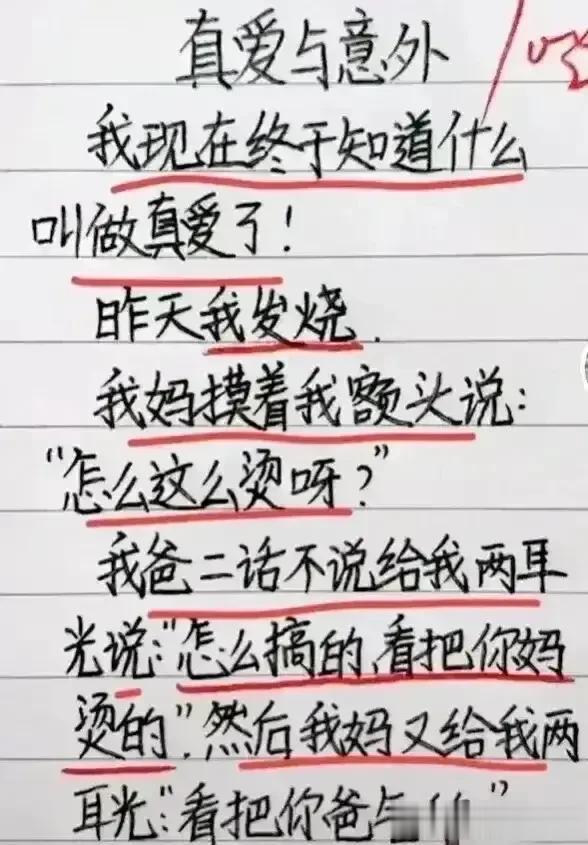 真爱与意外
我现在终于知道什么
叫做真爱了！
昨天我发烧.
我妈摸着我额头说：
“怎么这么烫呀？”
我爸二话不说给我两耳
光说：“怎么搞的，看把你妈
烫的”，然后我妈又给我两
耳光：“看把你爸气”